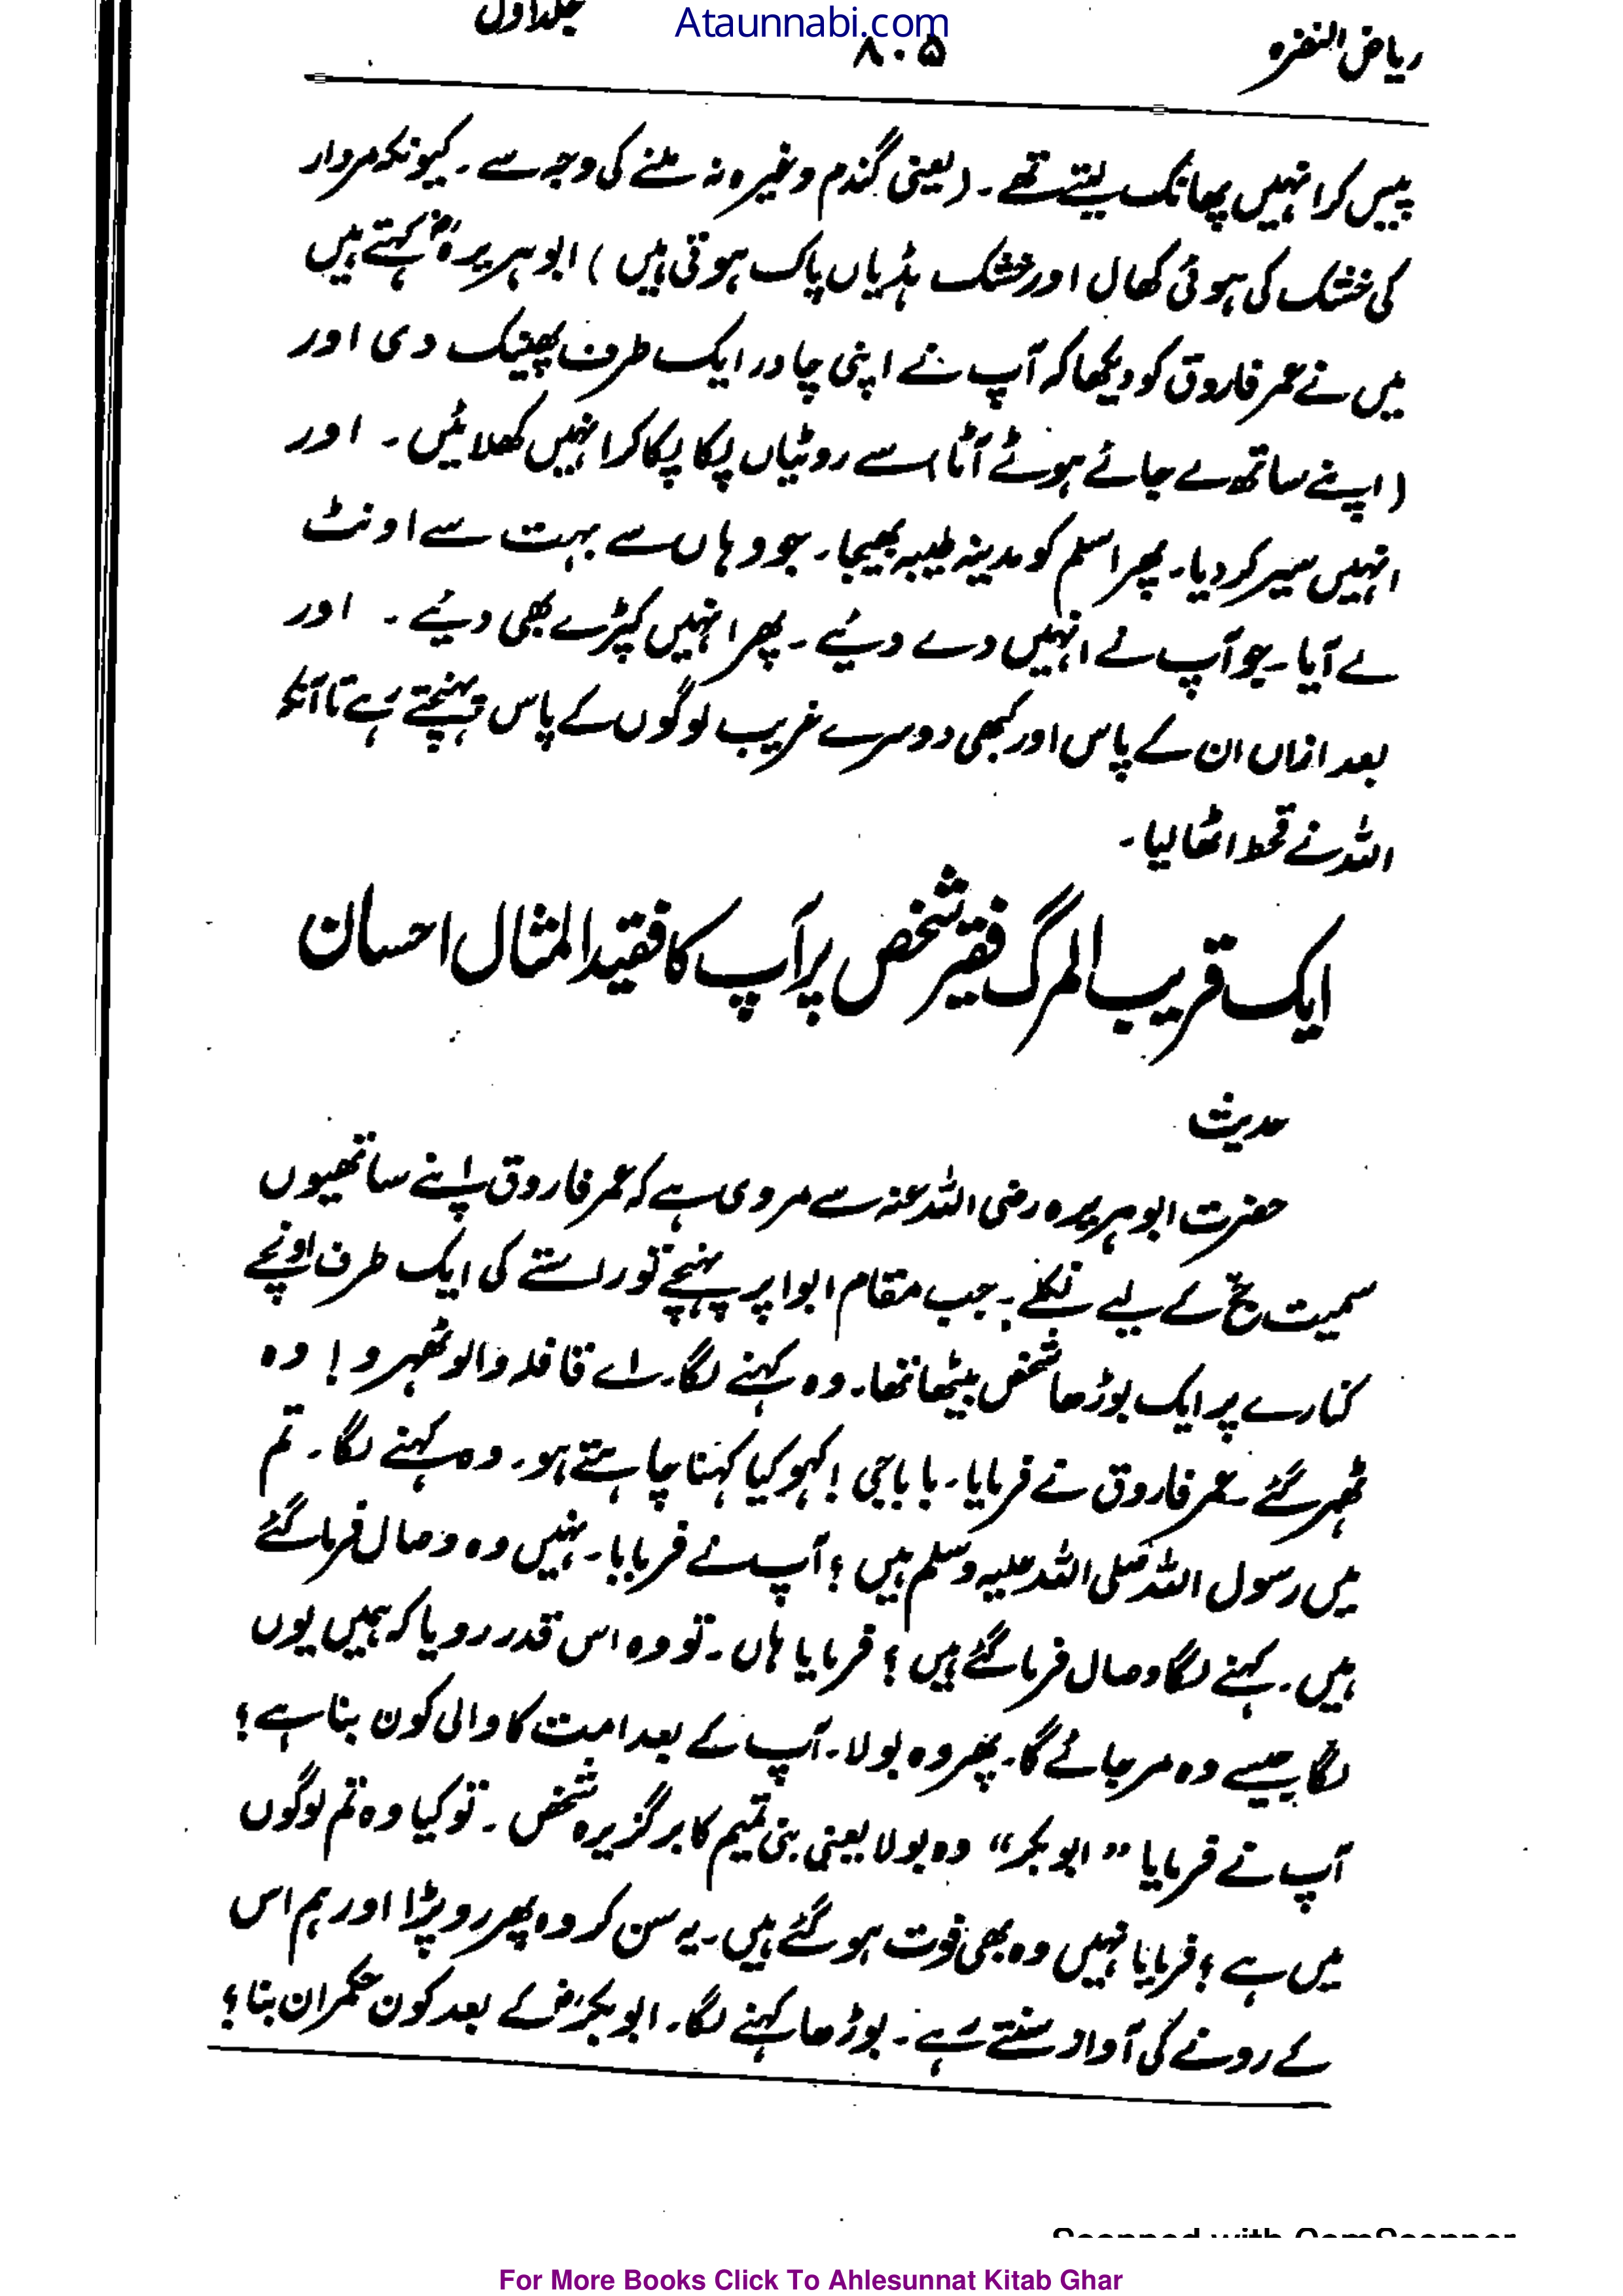 Ataunnabi.com
ریاض النضرہ ۸۰۵ جلد اول
پیس کر انہیں پھانک لیتے تھے۔ (یعنی گندم وغیرہ نہ ملنے کی وجہ سے۔ کیونکہ مردار
کی خشک کی ہوئی کھال اور خشک ہڈیاں پاک ہوتی ہیں) ابوہریرہؓ کہتے ہیں
میں نے عمر فاروق کو دیکھا کہ آپ نے اپنی چادر ایک طرف پھینک دی اور
(اپنے ساتھ لے جائے ہوئے آٹا) سے روٹیاں پکا پکا کر انہیں کھلائیں۔ اور
انہیں سیر کر دیا۔ پھر اسلم کو مدینہ طیبہ بھیجا۔ جو وہاں سے بہت سے اونٹ
لے آیا۔ جو آپ نے انہیں دے دیئے۔ پھر انہیں کپڑے بھی دیئے۔ اور
بعد ازاں ان کے پاس اور کبھی دوسرے غریب لوگوں کے پاس پہنچتے رہے تا آنکہ
اللہ نے قحط اٹھا لیا۔
ایک قریب المرگ فقیر شخص پر آپ کا فقید المثال احسان
حدیث
حضرت ابوہریرہ رضی اللہ عنہ سے مروی ہے کہ عمر فاروق اپنے ساتھیوں
سمیت حج کے لیے نکلے۔ جب مقام ابوا پر پہنچے تو راستے کی ایک طرف اونچے
کنارے پر ایک بوڑھا شخص بیٹھا تھا۔ وہ کہنے لگا۔ اے قافلہ والو ٹھہرو! وہ
ٹھہر گئے۔ عمر فاروق نے فرمایا۔ بابا جی! کہو کیا کہنا چاہتے ہو۔ وہ کہنے لگا۔ تم
میں رسول اللہ صلی اللہ علیہ وسلم ہیں؟ آپ نے فرمایا۔ نہیں وہ وصال فرما گئے
ہیں۔ کہنے لگا وصال فرما گئے ہیں؟ فرمایا ہاں۔ تو وہ اس قدر رویا کہ ہمیں یوں
لگا جیسے وہ مر جائے گا۔ پھر وہ بولا۔ آپ کے بعد امت کا والی کون بنا ہے؟
آپ نے فرمایا ”ابوبکر“ وہ بولا یعنی بنی تمیم کا برگزیدہ شخص۔ تو کیا وہ تم لوگوں
میں ہے؟ فرمایا نہیں وہ بھی فوت ہو گئے ہیں۔ یہ سن کر وہ پھر رو پڑا اور ہم اس
کے رونے کی آواز سنتے رہے۔ بوڑھا کہنے لگا۔ ابوبکرؓ کے بعد کون حکمران بنا؟
Scanned with CamScanner
For More Books Click To Ahlesunnat Kitab Ghar